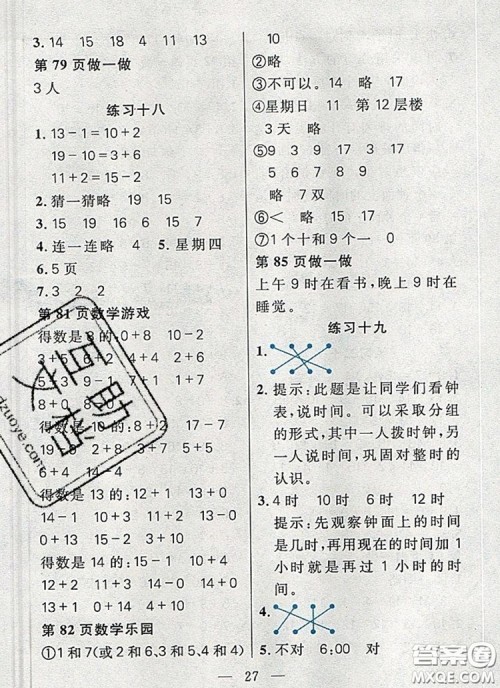 3. 14 15 18 4 11 13
第 79 页做一做
3 人
练习十八
1. 13-1=10+2
19-10=3+6
11+2=15-2
2. 猜一猜略 19 15
3. 15 19 16 6 15 7
4. 连一连略 4 5. 星期四
6. 5 页
7. 3 2 2
第 81 页数学游戏
得数是 8 的: 0+8 10-2
1+7 9-1 2+6
3+5 4+4
5+3 13-5 6+2 7+1
8+0 18-10
得数是 10 的:
9+1
15-5 3+7
6+4 14-4
得数是 13 的: 12+1
14-1 15-2 10+3
13-0 9+4
得数是 14 的: 15-1 10+4
12+2 14-0
第 82 页数学乐园
①1 和 7(或 2 和 6、3 和 5、4 和 4)
10
②略
③不可以。 略
④星期日 11 第 12 层楼
3 天 略
⑤9 3 9 13 17
5 6 7 8 9
略 7 双
⑥< 略 17
⑦1 个十和 9 个一 0
第 85 页做一做
上午 9 时在看书,晚上 9 时在
睡觉。
练习十九
1.
2. 提示:此题是让同学们看钟
表,说时间。可以采取分组
的形式,其中一人拨时钟,另
一人说时间,巩固对整时的
认识。
3. 4 时 10 时 6 时 12 时
提示:先观察钟面上的时间
是几时,再用现在的时间加 1
小时就可得过 1 小时的时
间。
4.
5. 不对 6:00 对
27
dzuoye.com
作业帮
答案圈
MXQE.COM